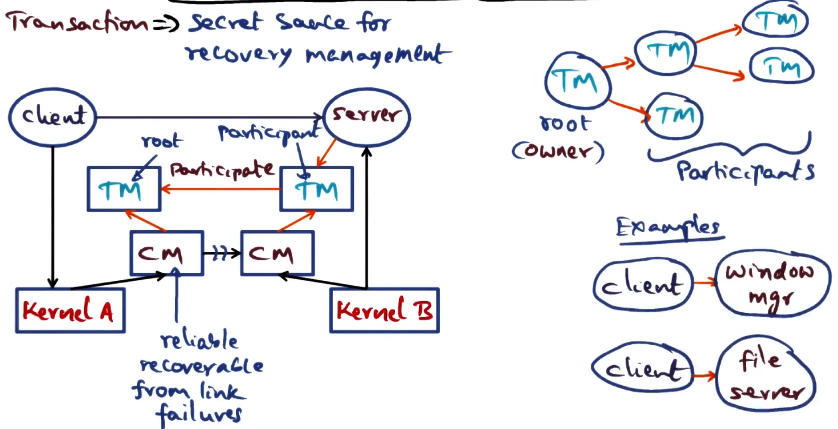 Transaction => Secret Sauce for
recovery management
client
server
root
participant
Participate
TM
TM
CM
CM
Kernel A
Kernel B
reliable
recoverable
from link
failures
TM
TM
TM
TM
TM
root
(owner)
Participants
Examples
client
window
mgr
client
file
server